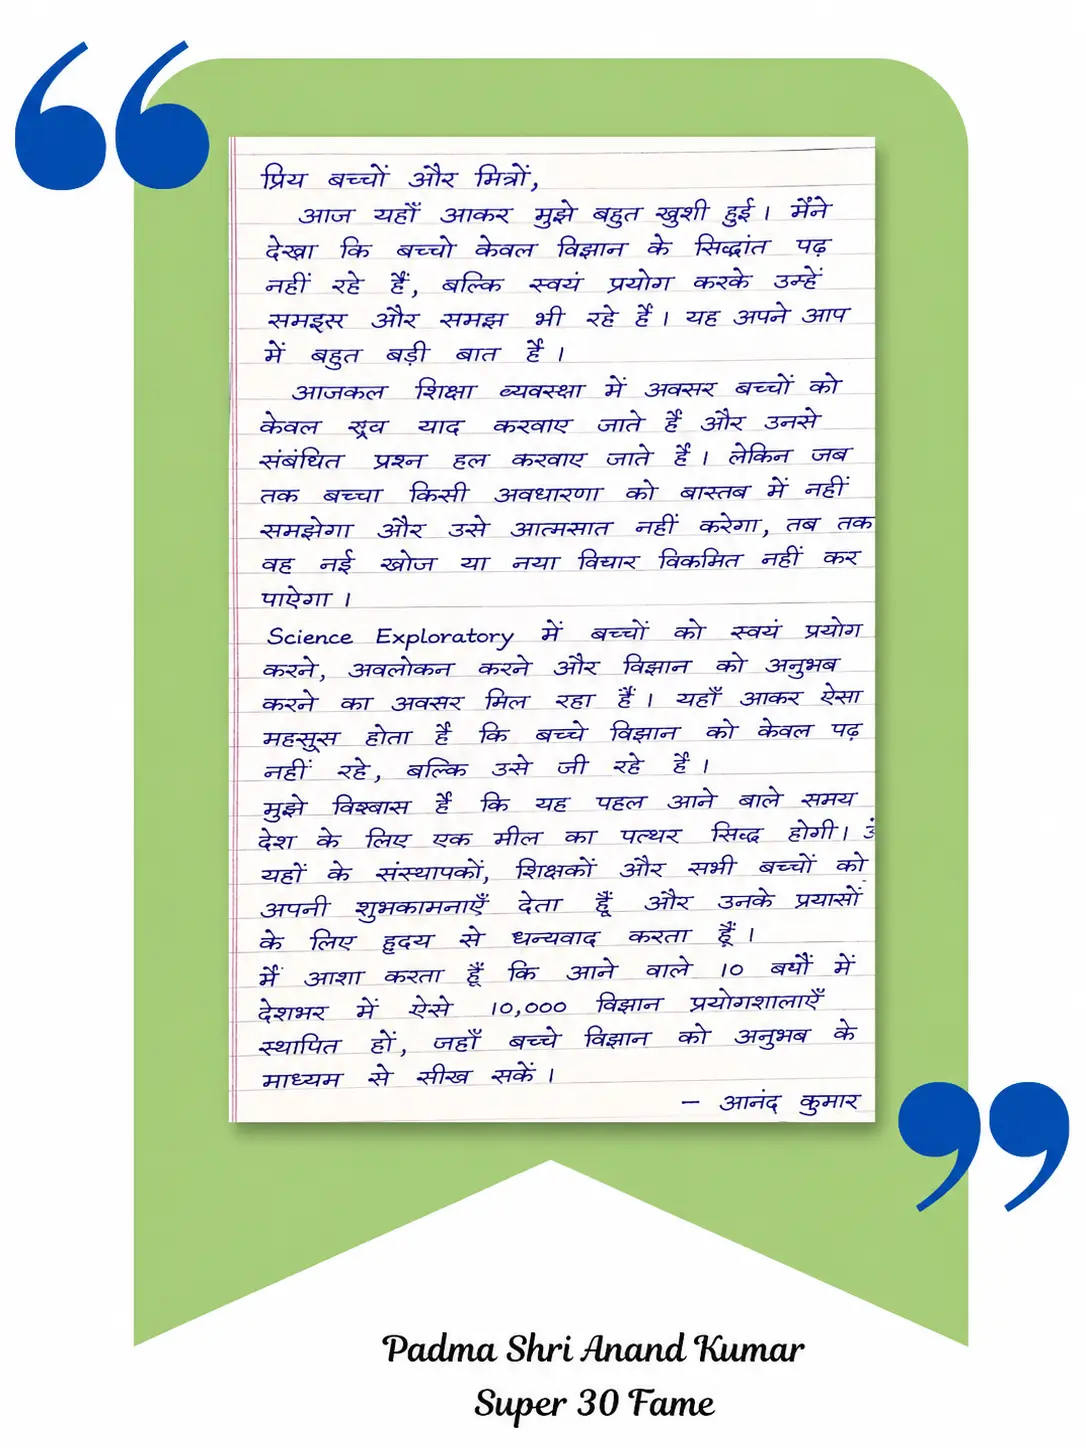 प्रिय बच्चों और मित्रों,
आज यहाँ आकर मुझे बहुत खुशी हुई। मैंने
देखा कि बच्चो केवल विज्ञान के सिद्धांत पढ़
नहीं रहे हैं, बल्कि स्वयं प्रयोग करके उन्हें
और समझ भी रहे हैं। यह अपने आप
में बहुत बड़ी बात है।
आजकल शिक्षा व्यवस्था में अक्सर बच्चों को
केवल याद करवाए जाते हैं और उनसे
संबंधित प्रश्न हल करवाए जाते हैं। लेकिन जब
तक बच्चा किसी अवधारणा को बास्तब में नहीं
समझेगा और उसे आत्मसात नहीं करेगा, तब तक
वह नई खोज या नया विचार विकमित नहीं कर
पाऐगा।
Science Exploratory में बच्चों को स्वयं प्रयोग
करने, अवलोकन करने और विज्ञान को अनुभब
करने का अवसर मिल रहा हैं। यहाँ आकर ऐसा
महसूस होता हैं कि बच्चे विज्ञान को केवल पढ़
नहीं रहे, बल्कि उसे जी रहे हैं।
मुझे विश्बास हैं कि यह पहल आने बाले समय
देश के लिए एक मील का पत्थर सिद्ध होगी।
यहों के संस्थापकों, शिक्षकों और सभी बच्चों को
अपनी शुभकामनाएँ देता हूँ और उनके प्रयासों
के लिए हृदय से धन्यवाद करता हूँ।
मैं आशा करता हूँ कि आने वाले १० में
देशभर में ऐसे १०,००० विज्ञान प्रयोगशालाएँ
स्थापित हों, जहाँ बच्चे विज्ञान को अनुभब के
माध्यम से सीख सकें।
— आनंद कुमार
Padma Shri Anand Kumar
Super 30 Fame